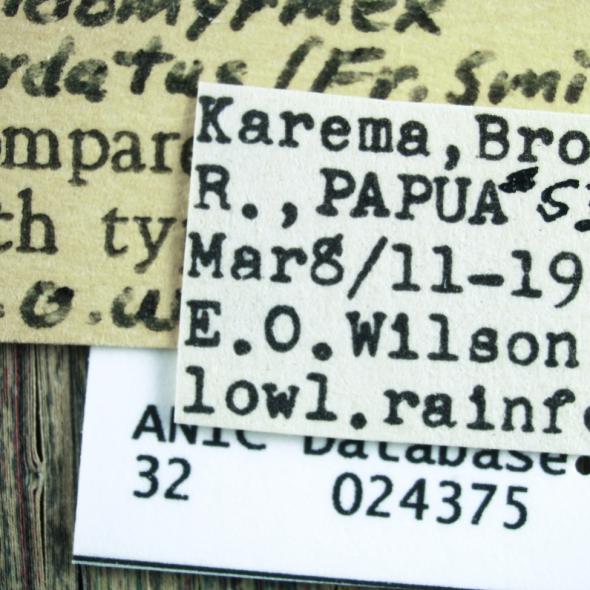 domyrmex
rdatus (Fr. Smi
ompare
th ty
.o.w
Karema, Bro
R., PAPUA
Mar8/11-19
E.O.Wilson
lowl.rainf
ANIC Database.
32 024375